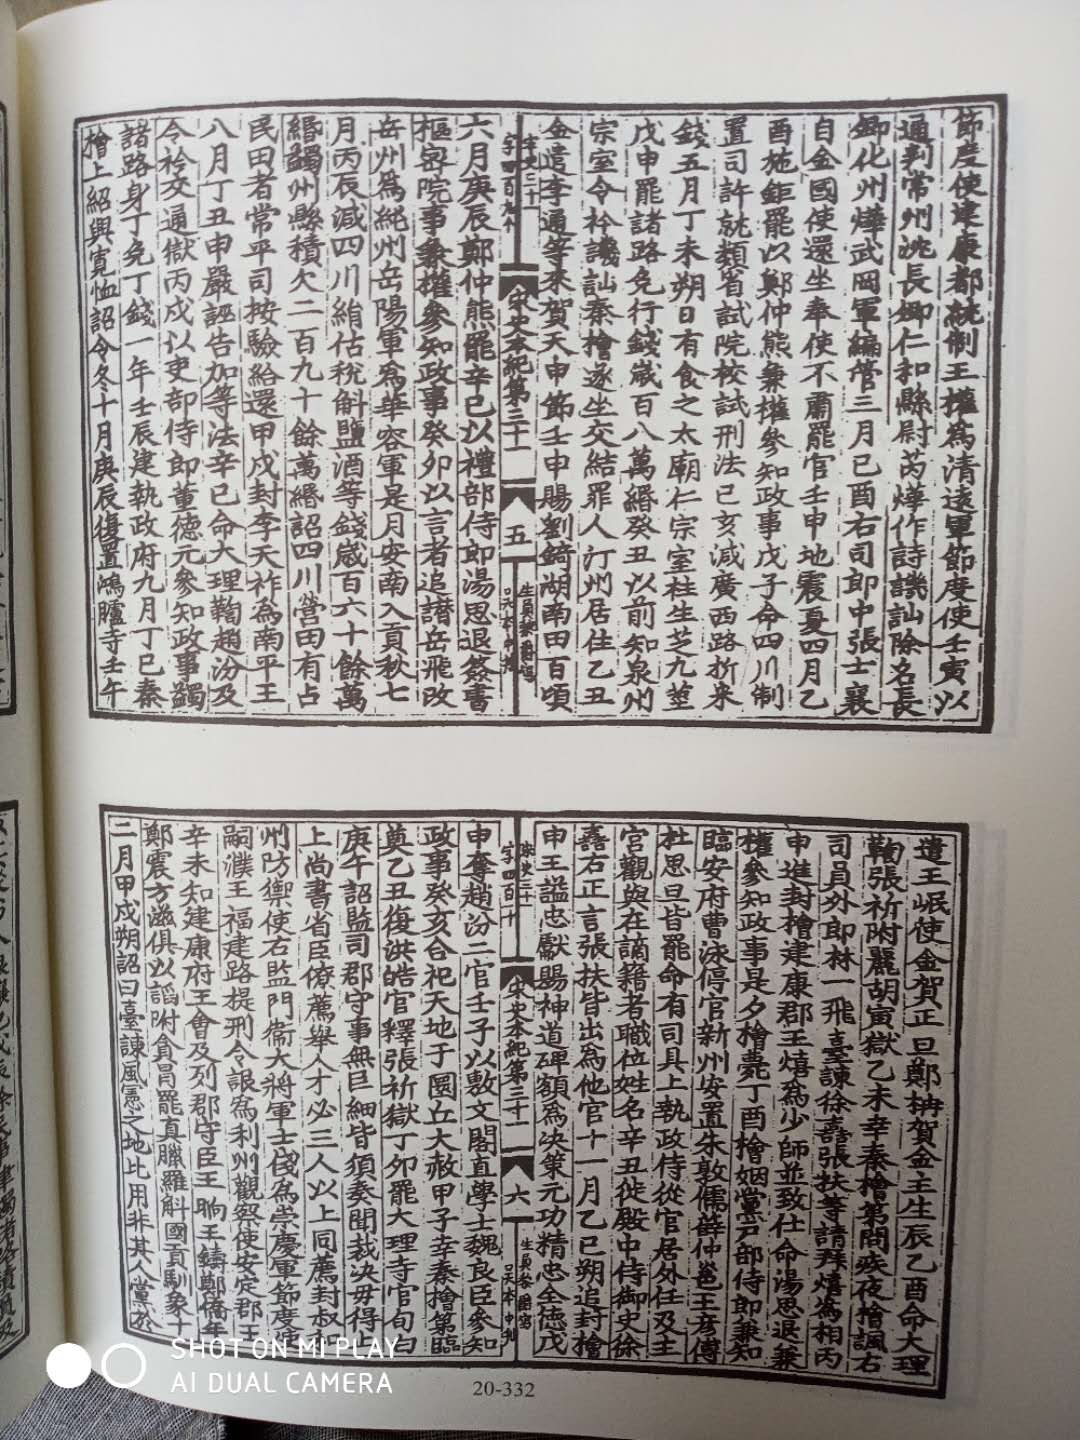 節度使建康都統制王權爲清遠軍節度使壬寅以
通判常州沈長卿仁和縣尉芮燁作詩譏訕除名長
卿化州燁武岡軍編管三月己酉右司郎中張士襄
自金國使還坐奉使不肅罷官壬申地震夏四月乙
酉施鉅罷以鄭仲熊兼權參知政事戊子命四川制
置司許就類省試院校試刑法己亥減廣西路折米
錢五月丁未朔日有食之太廟仁宗室柱生芝九莖
戊申罷諸路免行錢歲百八萬緡癸丑以前知泉州
宗室令衿譏訕秦檜遂坐交結罪人汀州居住乙丑
金遣李通等來賀天申節壬申賜劉錡湖南田百頃
宋史三十一
字四百九十
宋史本紀第三十一
五
六月庚辰鄭仲熊罷辛巳以禮部侍郎湯思退簽書
樞密院事兼權參知政事癸卯以言者追譖岳飛改
岳州爲純州岳陽軍爲華容軍是月安南入貢秋七
月丙辰減四川絹估稅斛鹽酒等錢歲百六十餘萬
緡蠲州縣積欠二百九十餘萬緡詔四川營田有占
民田者常平司按驗給還甲戌封李天祚為南平王
八月丁丑申嚴誣告加等法辛巳命大理鞫趙汾及
令衿交通獄丙戌以吏部侍郎董德元參知政事蠲
諸路身丁免丁錢一年壬辰建執政府九月丁巳秦
檜上紹興寬恤詔令冬十月庚辰復置鴻臚寺壬午
遣王岷使金賀正旦鄭柟賀金主生辰乙酉命大理
鞫張祈附麗胡寅獄乙未幸秦檜第問疾夜檜諷右
司員外郎林一飛臺諫徐嚞張扶等請拜熺為相丙
申進封檜建康郡王熺爲少師並致仕命湯思退兼
權參知政事是夕檜薨丁酉檜姻黨戸部侍郎兼知
臨安府曹泳停官新州安置朱敦儒薛仲邕王彥傅
杜思旦皆罷命有司具上執政侍從官居外任及主
宮觀與在謫籍者職位姓名辛丑徙殿中侍御史徐
嚞右正言張扶皆出爲他官十一月乙巳朔追封檜
申王謚忠獻賜神道碑額爲决策元功精忠全德戊
宋史三十一
字四百十
宋史本紀第三十一
六
申奪趙汾二官壬子以敷文閣直學士魏良臣參知
政事癸亥合祀天地于圜丘大赦甲子幸秦檜第臨
奠乙丑復洪皓官釋張祈獄丁卯罷大理寺官旬白
庚午詔監司郡守事無巨細皆須奏聞裁决毋得
上尚書省臣僚薦舉人才必三人以上同薦封叔和
州防禦使右監門衞大將軍士㒟為崇慶軍節度使
嗣濮王福建路提刑令詪為利州觀察使安定郡王
辛未知建康府王會及列郡守臣王晌王鑄鄭僑年
鄭震方滋俱以謟附貪冒罷真臘羅斛國貢馴象十
二月甲戌朔詔曰臺諫風憲之地比用非其人黨於
20-332
SHOT ON MI PLAY
AI DUAL CAMERA